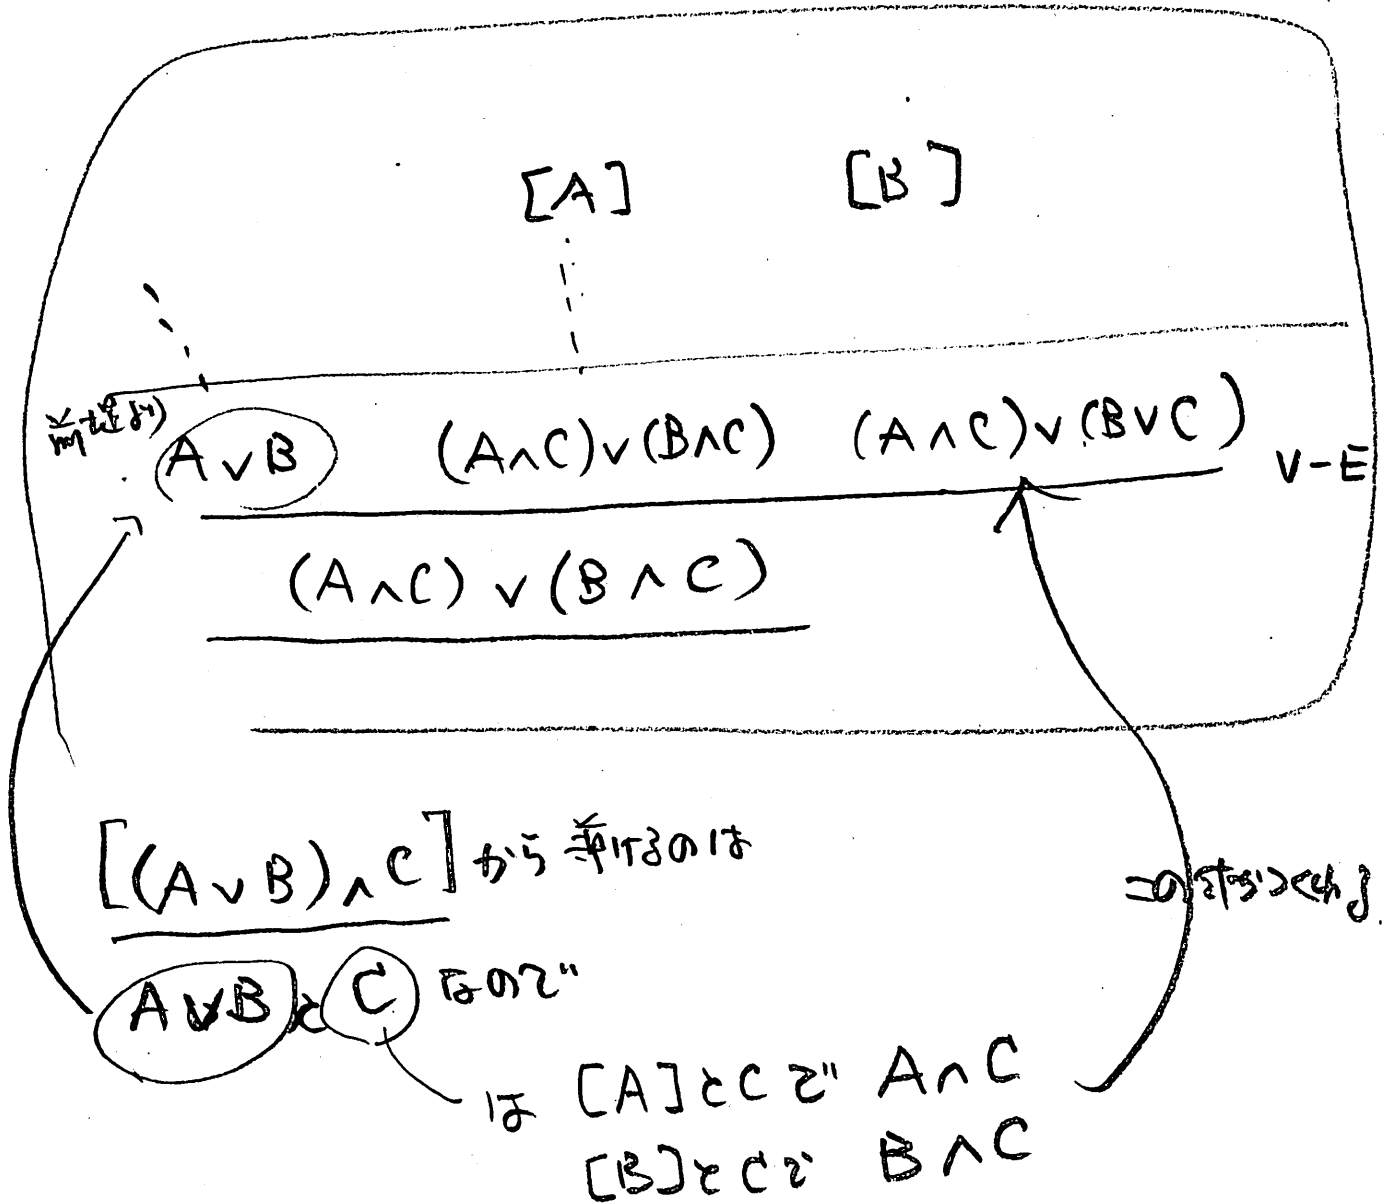 [A] [B]
A∨B (A∧C)∨(B∧C) (A∧C)∨(B∨C) ∨-E
(A∧C)∨(B∧C)
[(A∨B)∧C]から導けるのは
A∨BとCなので
この形がつくれる.
は [A]とCで A∧C
[B]とCで B∧C